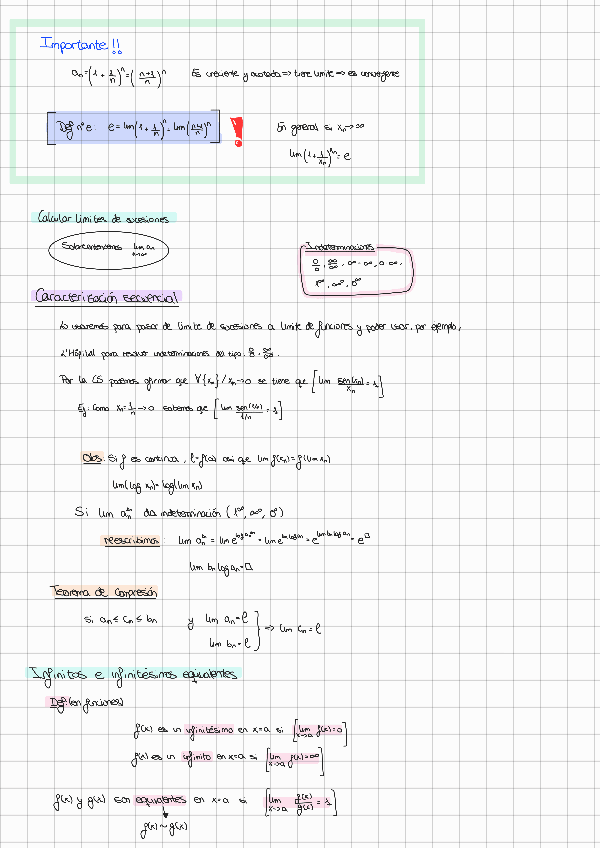 Importante!!
aₙ=(1+1/n)ⁿ=((n+1)/n)ⁿ Es creciente y acotada => tiene límite => es convergente
Def nº e: e=lim(1+1/n)ⁿ=lim((n+1)/n)ⁿ ! En general si xₙ→∞
lim(1+1/xₙ)^xₙ=e
Calcular límites de sucesiones
lim aₙ
n→∞
Indeterminaciones
0/0, ∞/∞, ∞-∞, 0·∞,
1^∞, ∞⁰, 0⁰
Caracterización secuencial
Lo usaremos para pasar de límite de sucesiones a límite de funciones y poder usar, por ejemplo,
L'Hôpital para resolver indeterminaciones del tipo 0/0, ∞/∞.
Por la CS podemos afirmar que ∀{xₙ}/xₙ→0 se tiene que [lim sen(xₙ)/xₙ=1]
Ej: Como xₙ=1/n→0 sabemos que [lim sen(1/n)/(1/n)=1]
Obs: Si f es continua, l=f(a) así que lim f(xₙ)=f(lim xₙ)
lim(log xₙ)=log(lim xₙ)
Si lim aₙ^bₙ da indeterminación (1^∞, ∞⁰, 0⁰)
reescribimos: lim aₙ^bₙ=lim e^(log aₙ^bₙ)=lim e^(bₙ log aₙ)=e^(lim bₙ log aₙ)=e^□
lim bₙ log aₙ=□
Teorema de compresión
Si aₙ≤cₙ≤bₙ y lim aₙ=l
lim bₙ=l } => lim cₙ=l
Infinitos e infinitésimos equivalentes
Def: (en funciones)
f(x) es un infinitésimo en x=a si [lim x→a f(x)=0]
f(x) es un infinito en x=a si [lim x→a f(x)=∞]
f(x) y g(x) son equivalentes en x=a si [lim x→a f(x)/g(x)=1]
f(x)~g(x)